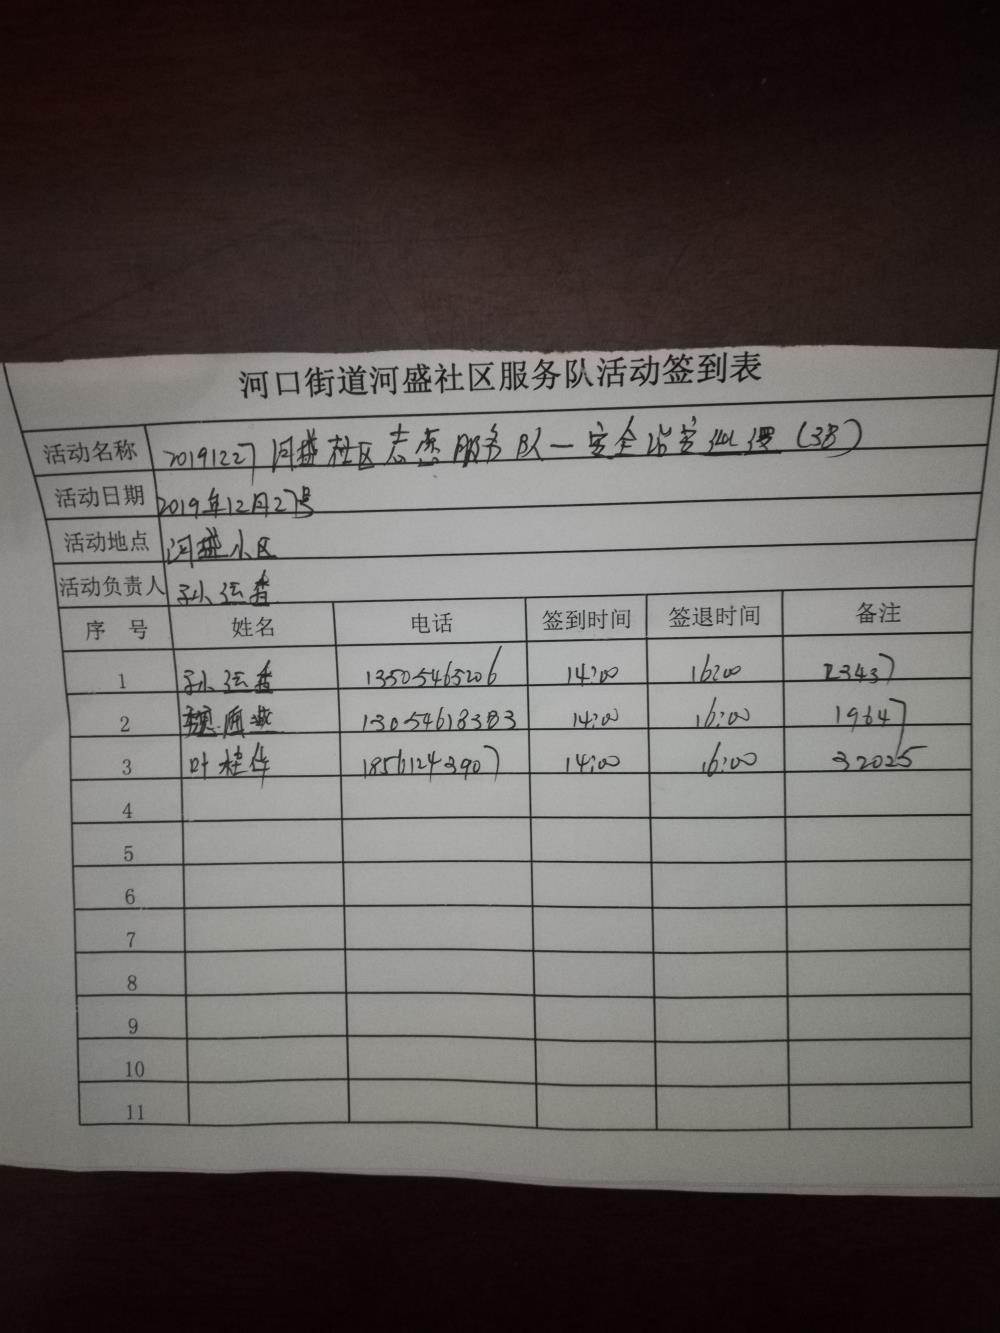 河口街道河盛社区服务队活动签到表
活动名称 20191227河盛社区志愿服务队—安全治安巡逻（3B）
活动日期 2019年12月27号
活动地点 河盛小区
活动负责人 孙香
序 号 姓名 电话 签到时间 签退时间 备注
1 孙香 13505465206 14:00 16:00 23437
2 魏 13054618383 14:00 16:00 19647
3 叶桂华 18561243907 14:00 16:00 32025
4
5
6
7
8
9
10
11